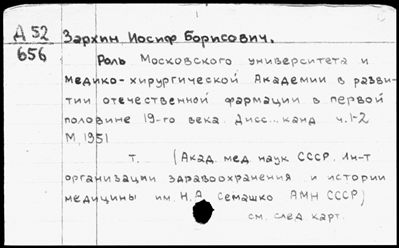 Д 52 Зархин Иосиф Борисович.
656 Роль Московского университета и
медико-хирургической Академии в разви-
тии отечественной фармации в первой
половине 19-го века. Дисс... канд ч.1-2
М, 1951
т. (Акад. мед. наук СССР. Ин-т
организации здравоохранения и истории
медицины им. Н.А. Семашко АМН СССР)
см. след карт.